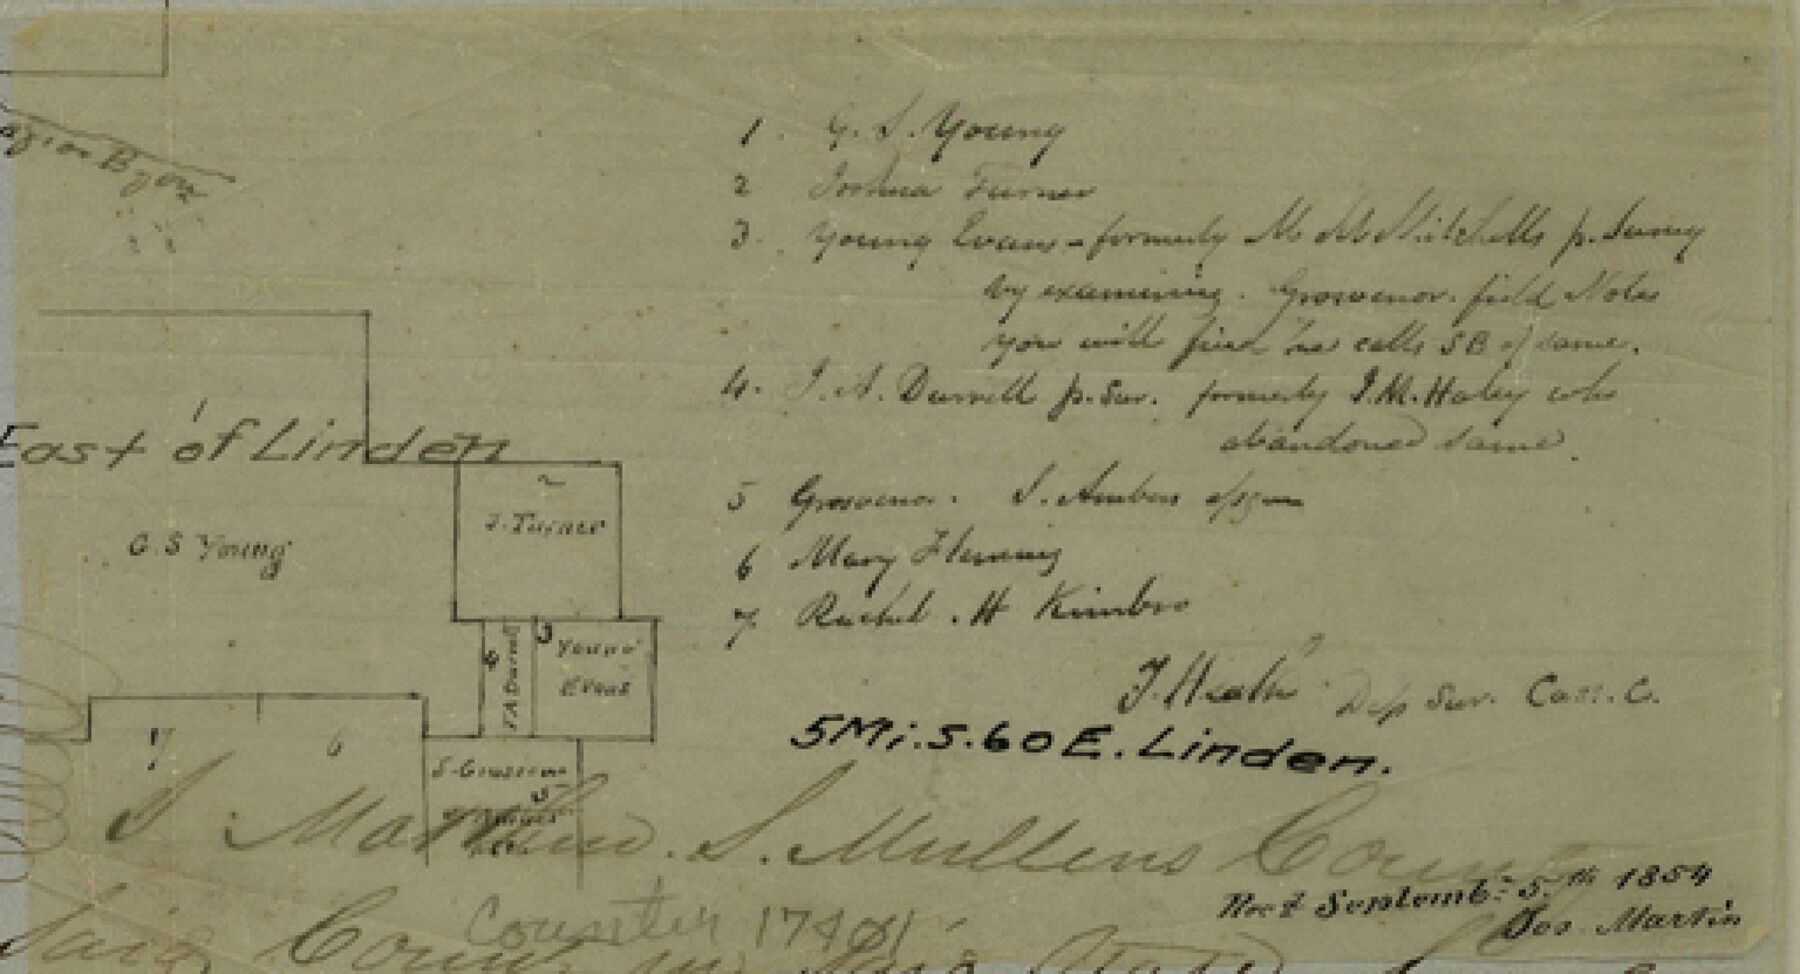 1. G. S. Young
2 Joshua Turner
3. Young Evans - formerly M McMitchells p. Survey
by examining. Grosvenor. field Notes
you will find he calls SB of same.
4. J. A. Durrell p. Sur. formerly I. M. Haley who
abandoned same.
5 Grosvenor. S. Ambers
6 Mary Flemming
7. Rachel. H Kimbro
1
East of Linden
2
J. Turner
G. S Young
4
J A Durrell
3
Young
Evans
J. Heath Dep Sur. Cass. C.
5Mi. S. 60 E. Linden.
7
6
5
I Matthew. S. Mullens County
Rec'd Septemb: 5th 1854
Jos. Martin
Counter 17401
Said County in State